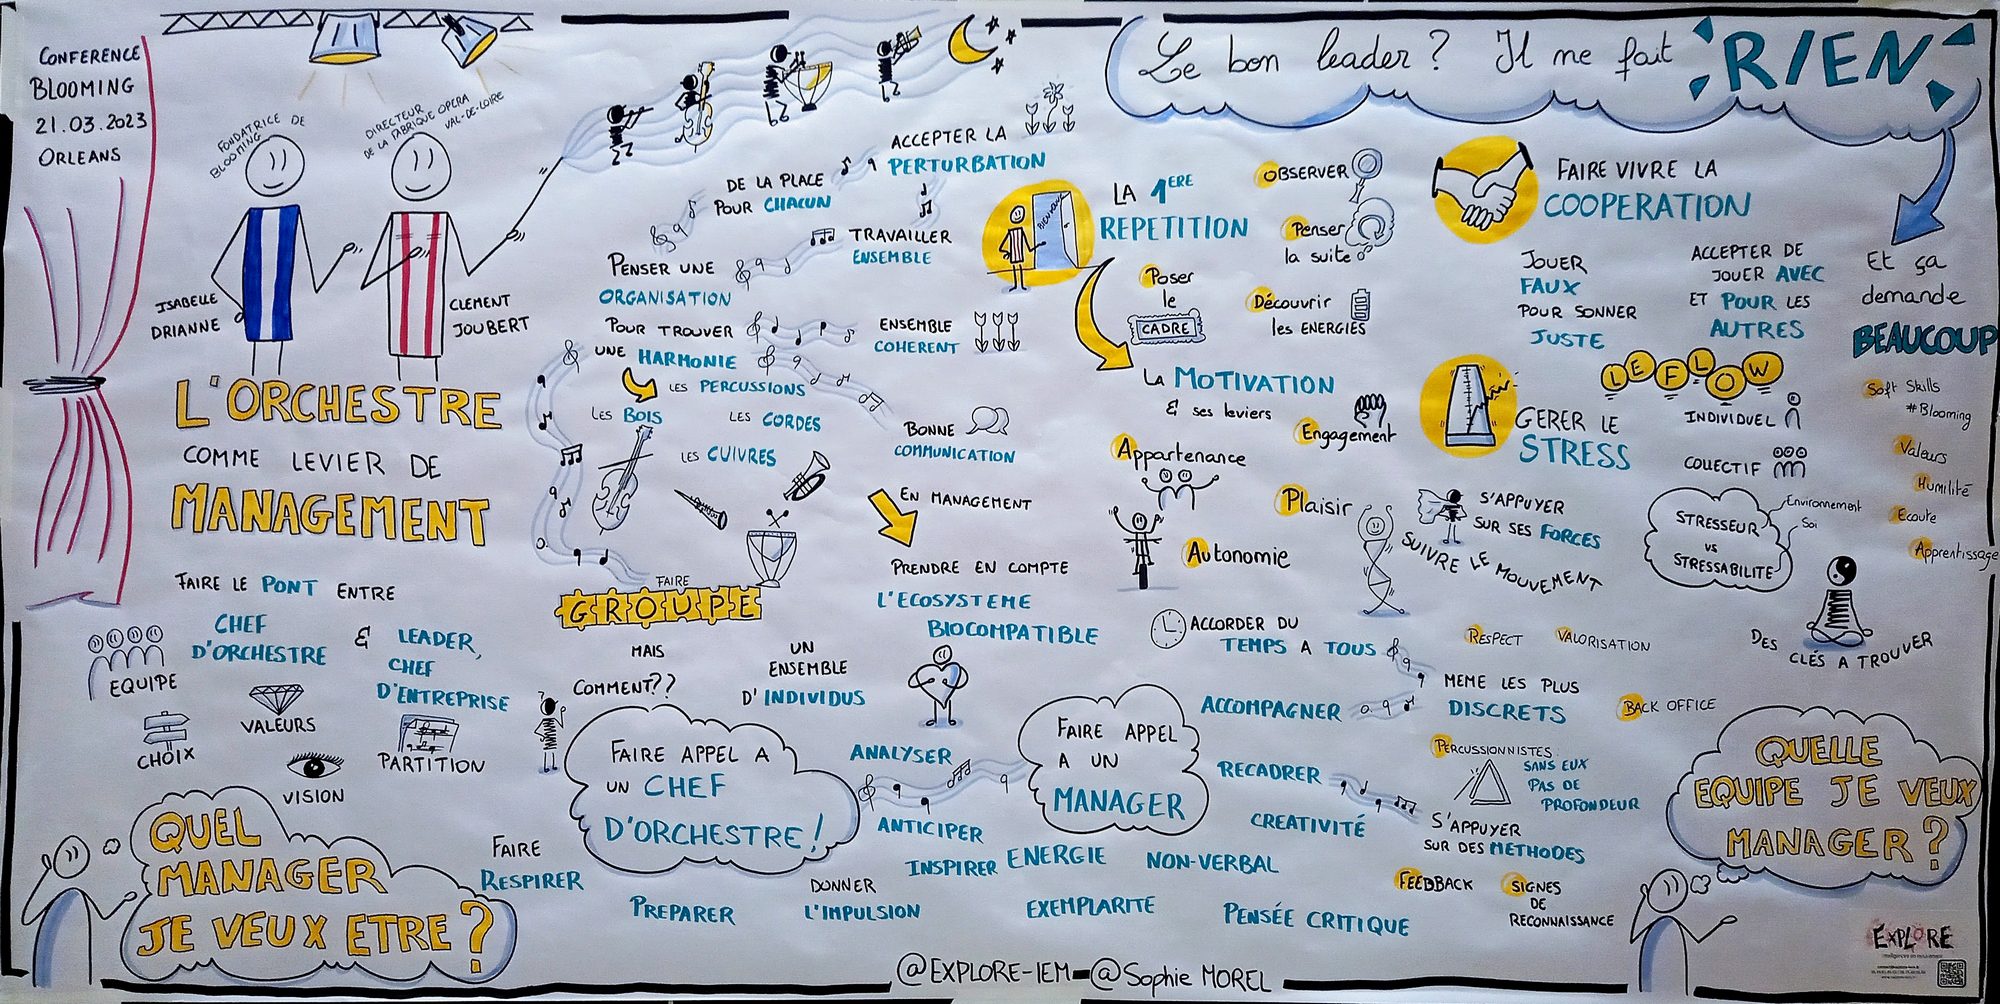 CONFERENCE
BLOOMING
21.03.2023
ORLEANS
FONDATRICE DE
BLOOMING
DIRECTEUR
DE LA FABRIQUE OPERA
VAL-DE-LOIRE
ISABELLE
DRIANNE
CLEMENT
JOUBERT
L'ORCHESTRE
COMME LEVIER DE
MANAGEMENT
FAIRE LE PONT ENTRE
CHEF
D'ORCHESTRE
& LEADER,
CHEF
D'ENTREPRISE
EQUIPE
VALEURS
CHOIX
PARTITION
VISION
QUEL
MANAGER
JE VEUX ETRE ?
ACCEPTER LA
PERTURBATION
DE LA PLACE
POUR CHACUN
TRAVAILLER
ENSEMBLE
PENSER UNE
ORGANISATION
POUR TROUVER
UNE HARMONIE
ENSEMBLE
COHERENT
LES PERCUSSIONS
LES BOIS
LES CORDES
LES CUIVRES
BONNE
COMMUNICATION
EN MANAGEMENT
PRENDRE EN COMPTE
L'ECOSYSTEME
BIOCOMPATIBLE
FAIRE
GROUPE
MAIS
COMMENT??
UN
ENSEMBLE
D'INDIVIDUS
FAIRE APPEL A
UN CHEF
D'ORCHESTRE !
FAIRE
RESPIRER
PREPARER
ANALYSER
ANTICIPER
INSPIRER
DONNER
L'IMPULSION
FAIRE APPEL
A UN
MANAGER
ENERGIE
NON-VERBAL
EXEMPLARITE
PENSÉE CRITIQUE
ACCORDER DU
TEMPS A TOUS
ACCOMPAGNER
RECADRER
CREATIVITÉ
MEME LES PLUS
DISCRETS
RESPECT
VALORISATION
BACK OFFICE
PERCUSSIONNISTES:
SANS EUX
PAS DE
PROFONDEUR
S'APPUYER
SUR DES METHODES
FEEDBACK
SIGNES
DE
RECONNAISSANCE
Le bon leader ? Il ne fait RIEN
BIENVENUE
LA 1ERE
REPETITION
OBSERVER
Penser
la suite
Poser
le
CADRE
Découvrir
les ENERGIES
LA MOTIVATION
& ses leviers
Engagement
Appartenance
Plaisir
Autonomie
FAIRE VIVRE LA
COOPERATION
JOUER
FAUX
POUR SONNER
JUSTE
ACCEPTER DE
JOUER AVEC
ET POUR LES
AUTRES
LE FLOW
INDIVIDUEL
COLLECTIF
GERER LE
STRESS
S'APPUYER
SUR SES FORCES
SUIVRE LE MOUVEMENT
STRESSEUR
VS
STRESSABILITE
Environnement
Soi
DES CLÉS A TROUVER
Et ça
demande
BEAUCOUP
Soft Skills
#Blooming
Valeurs
Humilité
Ecoute
Apprentissage
QUELLE
EQUIPE JE VEUX
MANAGER ?
@EXPLORE-IEM-@Sophie MOREL
EXPLORE